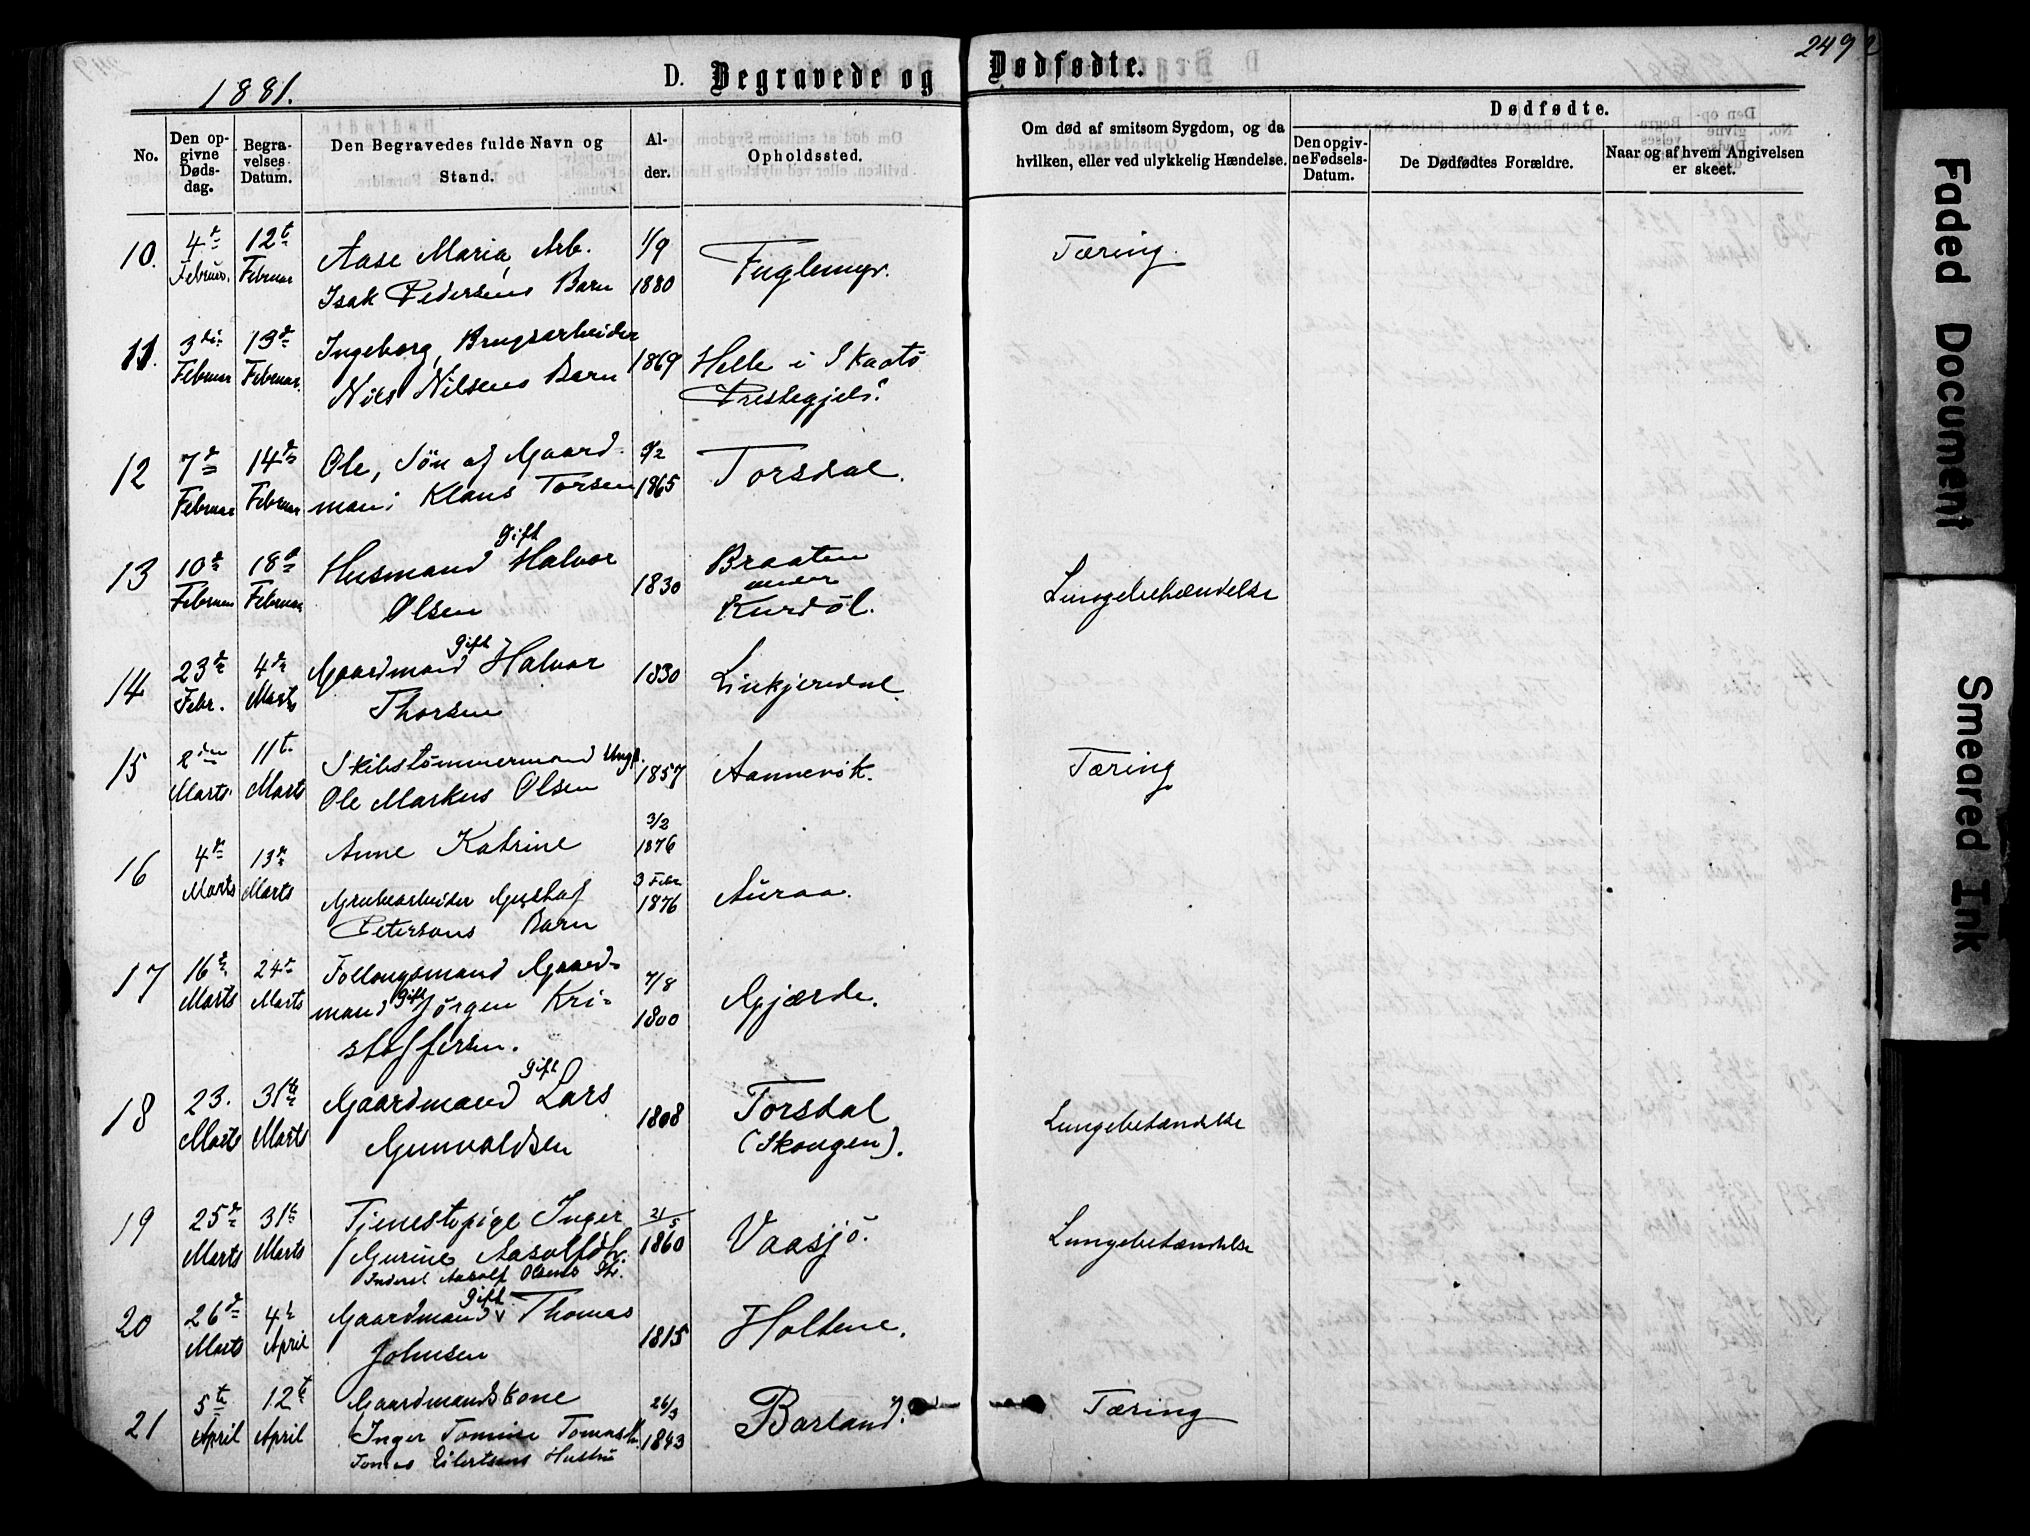 1881.
D. Begravede og Dødfødte.
249
No.
Den opgivne Dødsdag.
Begravelses Datum.
Den Begravedes fulde Navn og Stand.
Alder.
Opholdssted.
Om død af smitsom Sygdom, og da hvilken, eller ved ulykkelig Hændelse.
Dødfødte.
Den opgivne Fødsels-Datum.
De Dødfødtes Forældre.
Naar og af hvem Angivelsen er skeet.
10. 4de 12te Aase Maria, Arb. 1/9 Fuglemyr. Tæring.
Februar. Februar Isak Pedersens Barn 1880
11. 3die 13de Ingeborg, Brugsarbeider 1869 Helle i Skaatø
Februar Februar. Nils Nilsens Barn Prestegjeld.
12 7de 14de Ole, Søn af Gaard- 2/2 Torsdal.
Februar Februar mand Klaus Torsen 1865
13 10de 18de Husmand Gift Halvor 1830 Braaten
under
Februar Februar Olsen Kurdøl. Lungebetændelse
14 23de 4de Gaardmand Gift Halvor 1830 Linkjendal.
Febr. Marts Thorsen
15 2den 11te Skibstømmermand Ungk. 1857 Aannevik. Tæring
Marts. Marts Ole Markus Olsen
16 4de 13de Anne Katrine 3/2 1876
Marts Marts Grubearbeider Gustaf 3 Febr 1876 Auraa.
Petersons Barn
17 16de 24de Follaugsmand Gaard- 7/8 Gjærde.
Marts Marts mand Gift Jørgen Kri- 1800
stoffersen.
18 23. 31te Gaardmand Gift Lars 1808 Torsdal Lungebetændelse
Marts Marts Gunvaldsen (Skougen).
19 25de 31te Tjenestepige Inger 21/5 Vaasjø. Lungebetændelse
Marts Marts Gurine Aasolfsdtr. 1860
Inderst Aasolf Olsens Dtr.
20 26de 4de Gaardmand Gift Thomas 1815 Holtene.
Marts April Johnsen
21 5te 12te Gaardmandskone 26/3 Barland. Tæring
April April Inger Tomine Tomasdtr 1843
Tomas Eilertsens Hustru
Faded Document
Smeared Ink